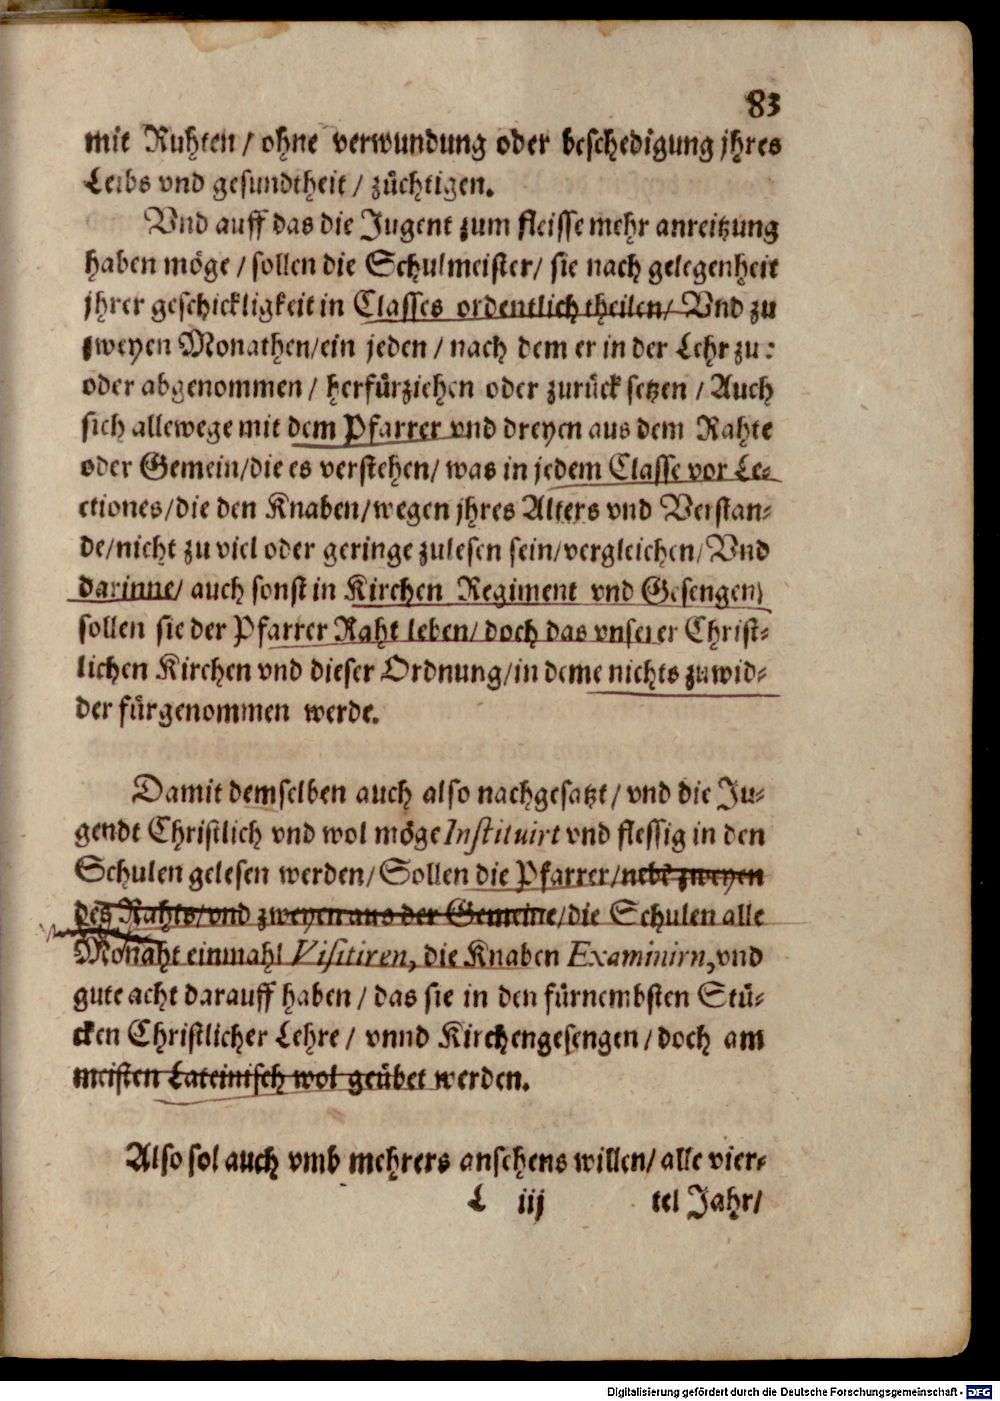 83
mit Ruhten / ohne verwundung oder beschedigung jhres
Leibs vnd gesundtheit / züchtigen.
Vnd auff das die Jugent zum fleisse mehr anreitzung
haben möge / sollen die Schulmeister / sie nach gelegenheit
jhrer geschickligkeit in Classes ordentlich theilen / Vnd zu
zweyen Monathen / ein jeden / nach dem er in der Lehr zu:
oder abgenommen / herfürziehen oder zurück setzen / Auch
sich allewege mit dem Pfarrer vnd dreyen aus dem Rahte
oder Gemein / die es verstehen / was in jedem Classe vor Le-
ctiones / die den Knaben / wegen jhres Alters vnd Verstan-
de / nicht zu viel oder geringe zulesen sein / vergleichen / Vnd
darinne / auch sonst in Kirchen Regiment vnd Gesengen /
sollen sie der Pfarrer Raht leben / doch das vnserer Christ-
lichen Kirchen vnd dieser Ordnung / in deme nichts zuwid-
der fürgenommen werde.
Damit demselben auch also nachgesatzt / vnd die Ju-
gendt Christlich vnd wol möge Instituirt vnd flessig in den
Schulen gelesen werden / Sollen die Pfarrer / nebē zweyen
des Rahts / vnd zweyen aus der Gemeine / die Schulen alle
Monaht einmahl Visitiren, die Knaben Examinirn, vnd
gute acht darauff haben / das sie in den fürnembsten Stü-
cken Christlicher Lehre / vnnd Kirchengesengen / doch am
meisten Lateinisch wol geübet werden.
Also sol auch vmb mehrers ansehens willen / alle vier-
L iij tel Jahr /
Digitalisierung gefördert durch die Deutsche Forschungsgemeinschaft - DFG